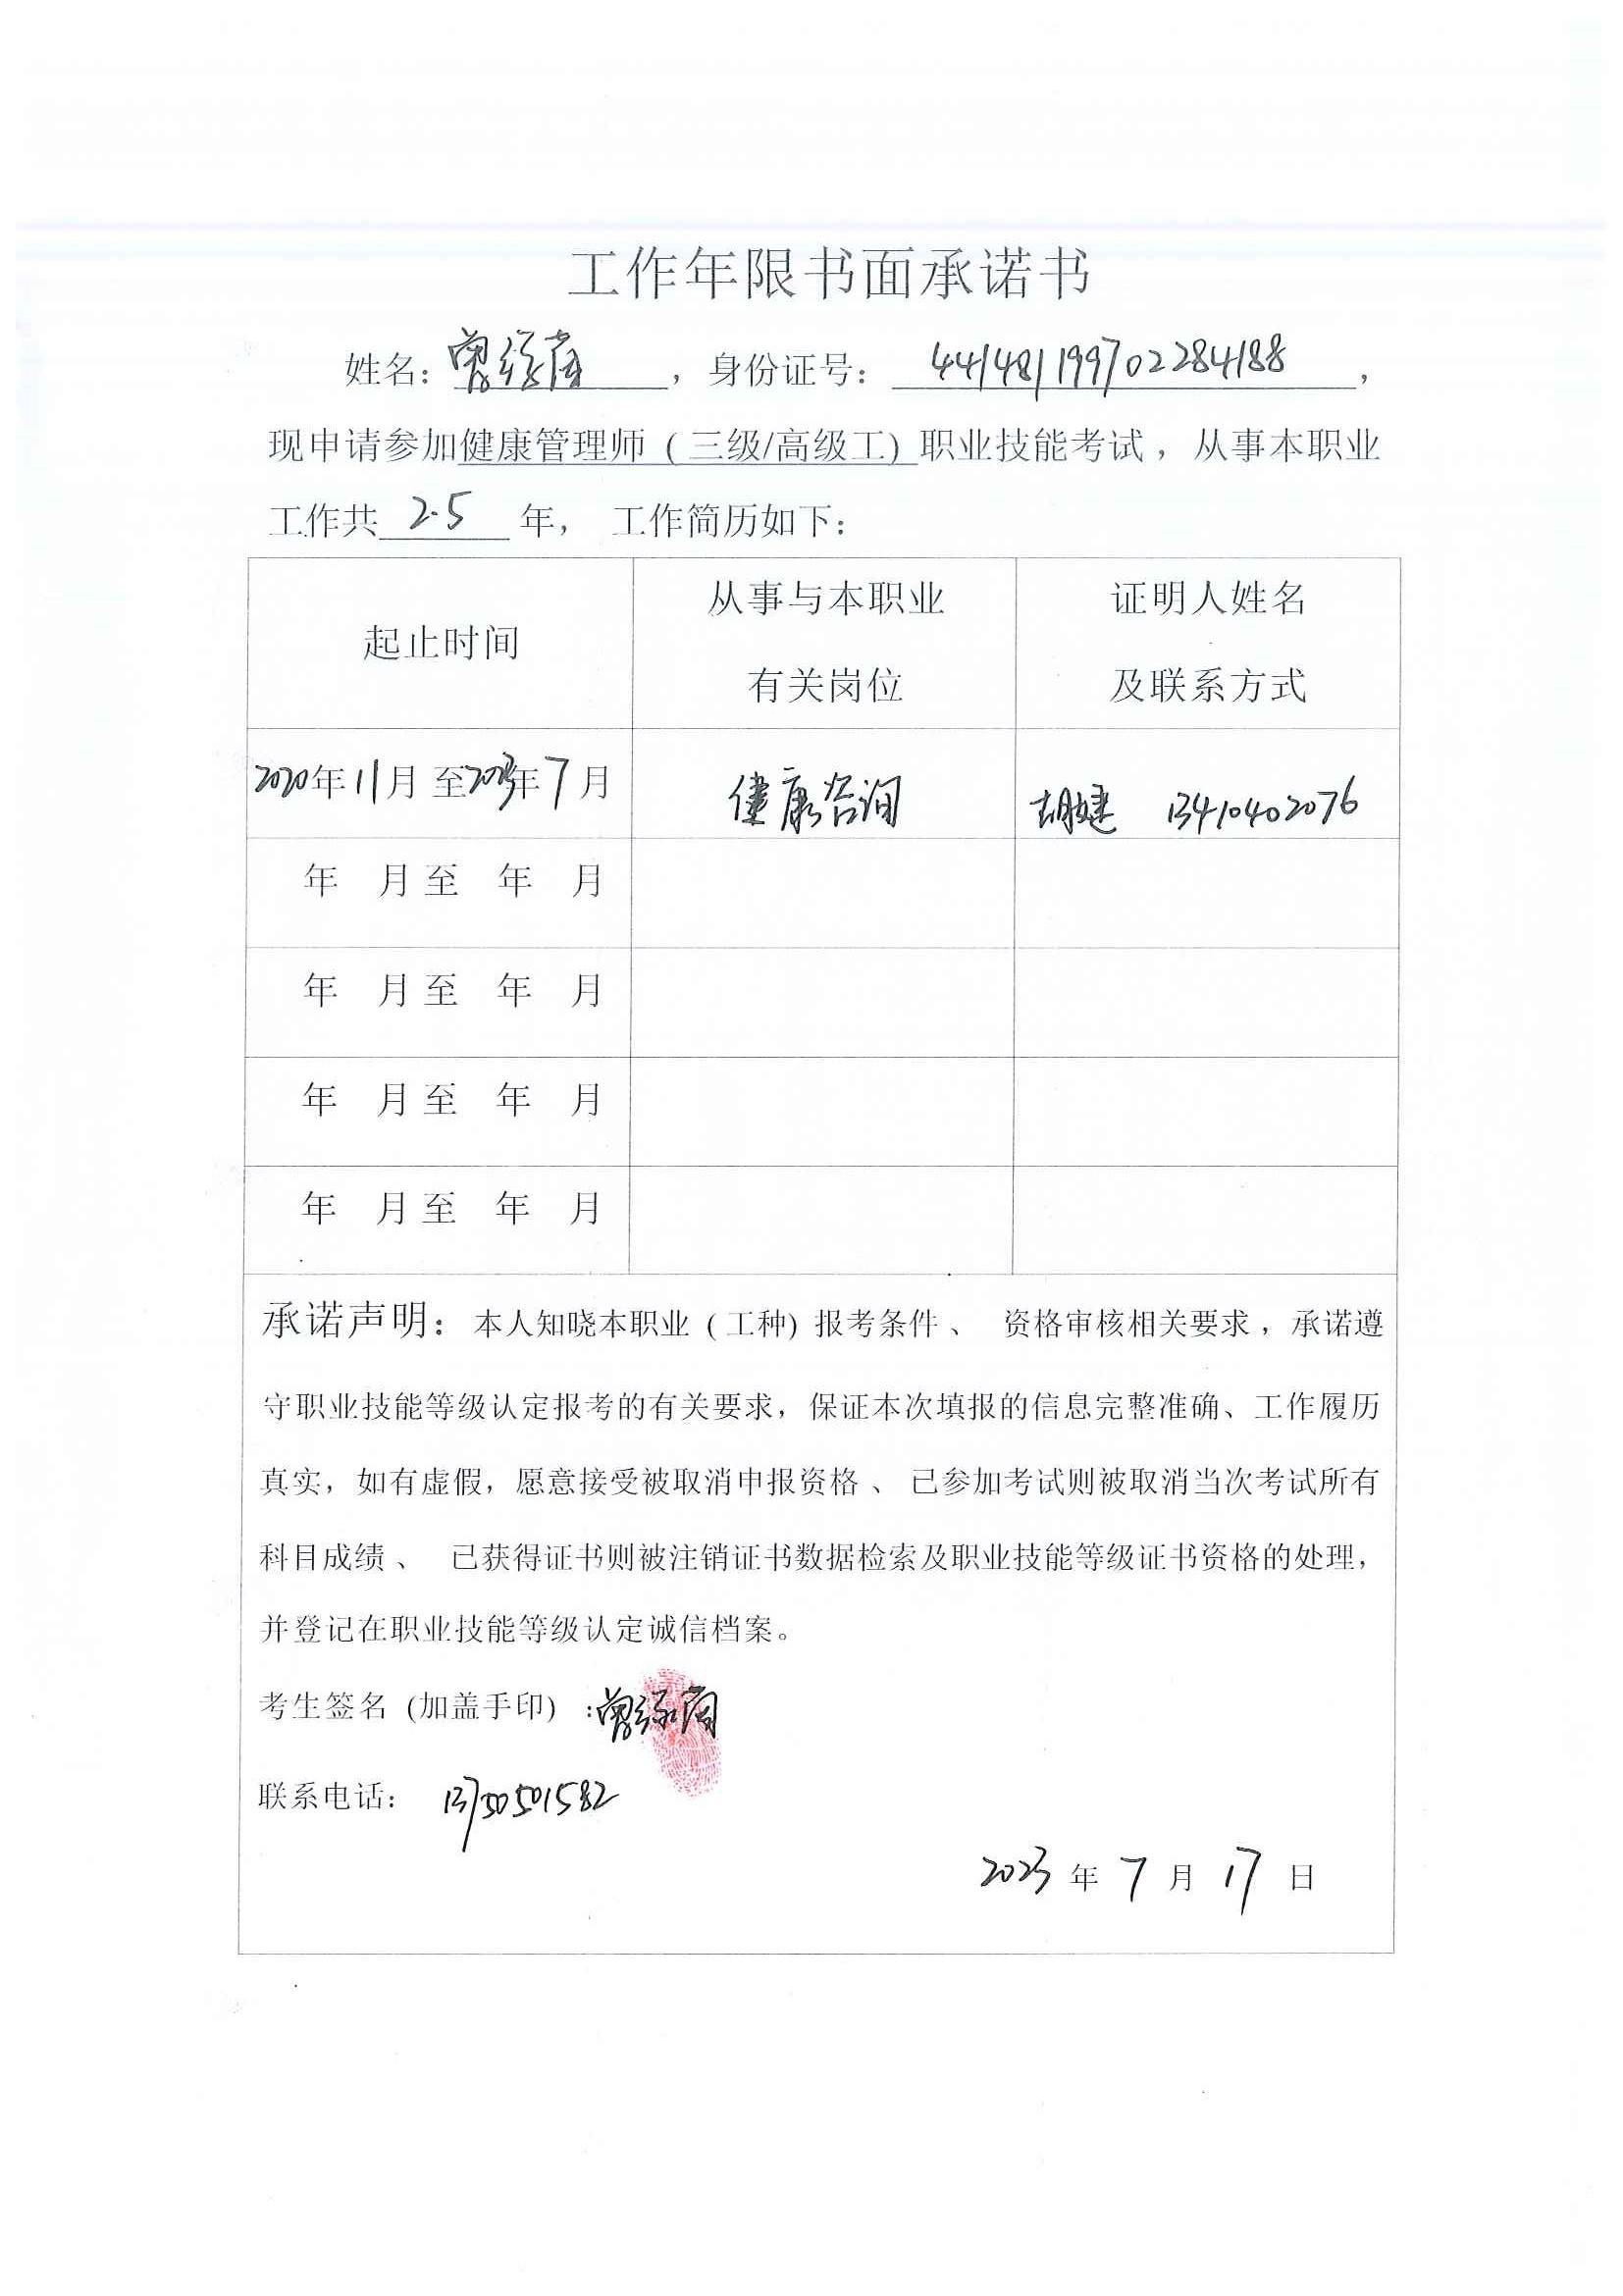 工作年限书面承诺书
姓名：曾 ，身份证号：441481199702284188，
现申请参加健康管理师（三级/高级工）职业技能考试，从事本职业
工作共 2.5 年， 工作简历如下：
起止时间
从事与本职业
有关岗位
证明人姓名
及联系方式
2020年11月至2023年7月 健康咨询 胡婕 13410402076
年 月至 年 月
年 月至 年 月
年 月至 年 月
年 月至 年 月
承诺声明：本人知晓本职业（工种）报考条件、 资格审核相关要求，承诺遵
守职业技能等级认定报考的有关要求，保证本次填报的信息完整准确、工作履历
真实，如有虚假，愿意接受被取消申报资格、已参加考试则被取消当次考试所有
科目成绩、 已获得证书则被注销证书数据检索及职业技能等级证书资格的处理，
并登记在职业技能等级认定诚信档案。
考生签名（加盖手印）：曾
联系电话： 13750501582
2023年7月17日